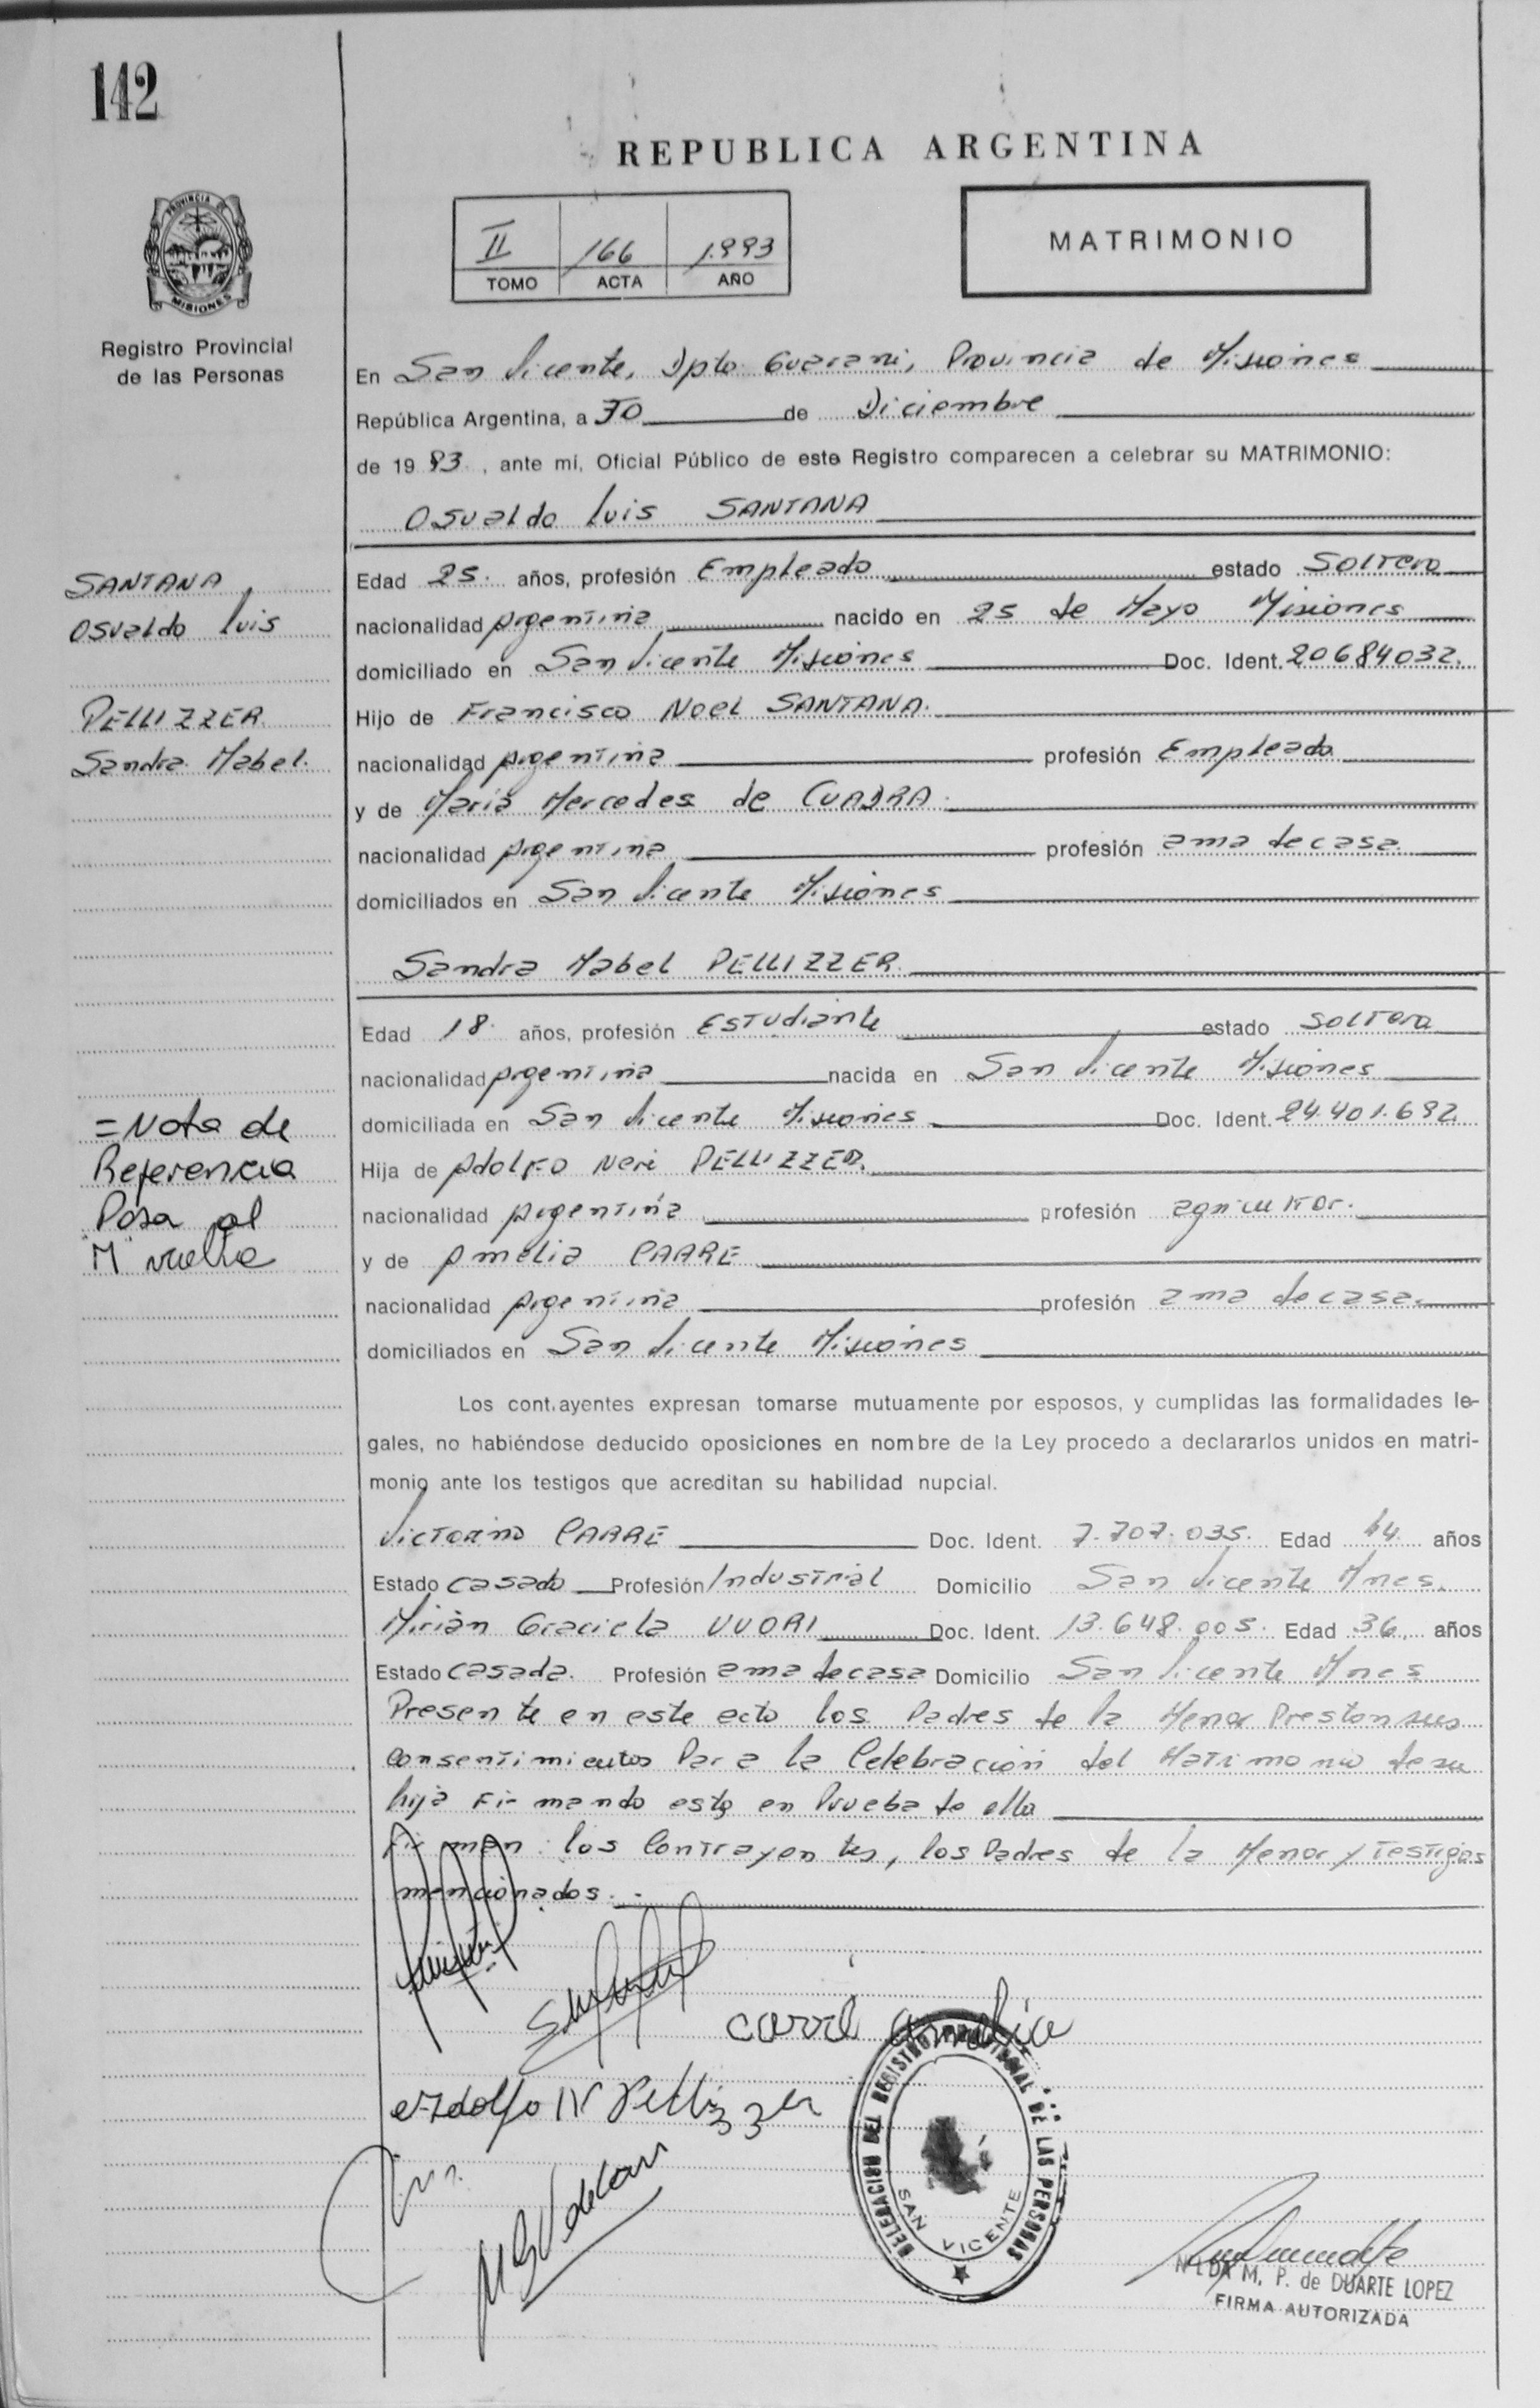 142
REPUBLICA ARGENTINA
II 166 1.993
TOMO ACTA AÑO
MATRIMONIO
PROVINCIA DE
MISIONES
Registro Provincial
de las Personas
En San Vicente, Dpto Guarani, Provincia de Misiones
República Argentina, a 30 de Diciembre
de 19 93, ante mí, Oficial Público de este Registro comparecen a celebrar su MATRIMONIO:
Osvaldo Luis SANTANA
SANTANA
Osvaldo Luis
PELLIZZER
Sandra Mabel.
Edad 25. años, profesión Empleado estado Soltero
nacionalidad Argentina nacido en 25 de Mayo Misiones
domiciliado en San Vicente Misiones Doc. Ident. 20684032.
Hijo de Francisco Noel SANTANA.
nacionalidad Argentina profesión Empleado
y de Maria Mercedes de CUADRA.
nacionalidad Argentina profesión ama de casa.
domiciliados en San Vicente Misiones
Sandra Mabel PELLIZZER.
Edad 18. años, profesión Estudiante estado Soltera
nacionalidad Argentina nacida en San Vicente Misiones
domiciliada en San Vicente Misiones Doc. Ident. 24.401.692
Hija de Adolfo Neri PELLIZZER.
nacionalidad Argentina profesión agricultor.
y de Amelia CARRE
nacionalidad Argentina profesión ama de casa.
domiciliados en San Vicente Misiones
=Nota de
Referencia
Pasa al
"M" vuelta
Los contrayentes expresan tomarse mutuamente por esposos, y cumplidas las formalidades le-
gales, no habiéndose deducido oposiciones en nombre de la Ley procedo a declararlos unidos en matri-
monio ante los testigos que acreditan su habilidad nupcial.
Victorino CARRE Doc. Ident. 7.707.035. Edad 44 años
Estado Casado Profesión Industrial Domicilio San Vicente Mnes.
Mirian Graciela VUORI Doc. Ident. 13.648.005. Edad 36 años
Estado Casada. Profesión ama de casa Domicilio San Vicente Mnes
Presente en este acto los Padres de la Menor Prestan sus
consentimientos Para la Celebración del Matrimonio de su
hija Firmando esto en Prueba de ello
Firman: los Contrayentes, los Padres de la Menor y Testigos
mencionados.
carre amelia
Adolfo N Pellizzer
DELEGACION DEL REGISTRO PROVINCIAL DE LAS PERSONAS
SAN VICENTE
NILDA M. P. de DUARTE LOPEZ
FIRMA AUTORIZADA